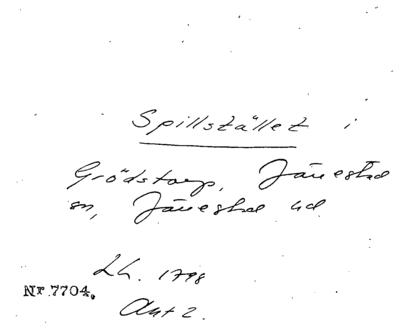 Spillstället i
Grödstorp, Järrestad
sn, Järrestad hd.
Lh. 1798
Nr 7704.
Akt 2.